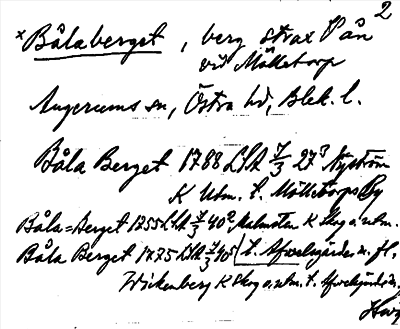 2
× Bålaberget, berg strax V ån
vid Mölletorp
Augerums sn, Östra hd, Blek. l.
Båla Berget 1788 LSA 7/3 27³ Nyström
K Utm. t. Mölletorps By
Båla=Berget 1755 LSA 7/3 40², Malmsten K Skog o. utm.
Båla Berget 1775 LSA 7/3 40⁵ t. Afvelsgärde m. fl.
Wickenberg K Skog o. utm. t. Afvelsgärde m.